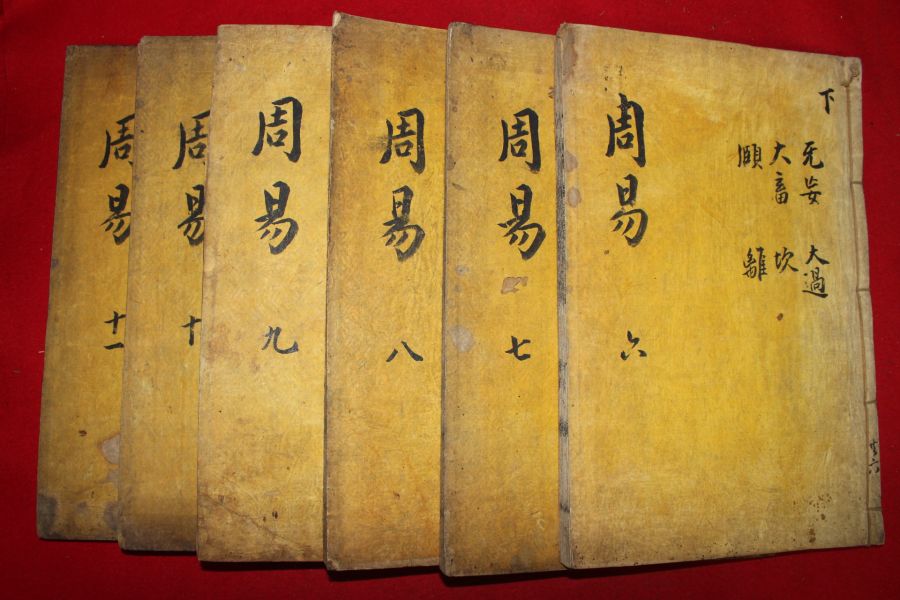 下
无妄 大過
大畜 坎
頤 離
周易 六
周易 七
周易 八
周易 九
周易 十
周易 十一